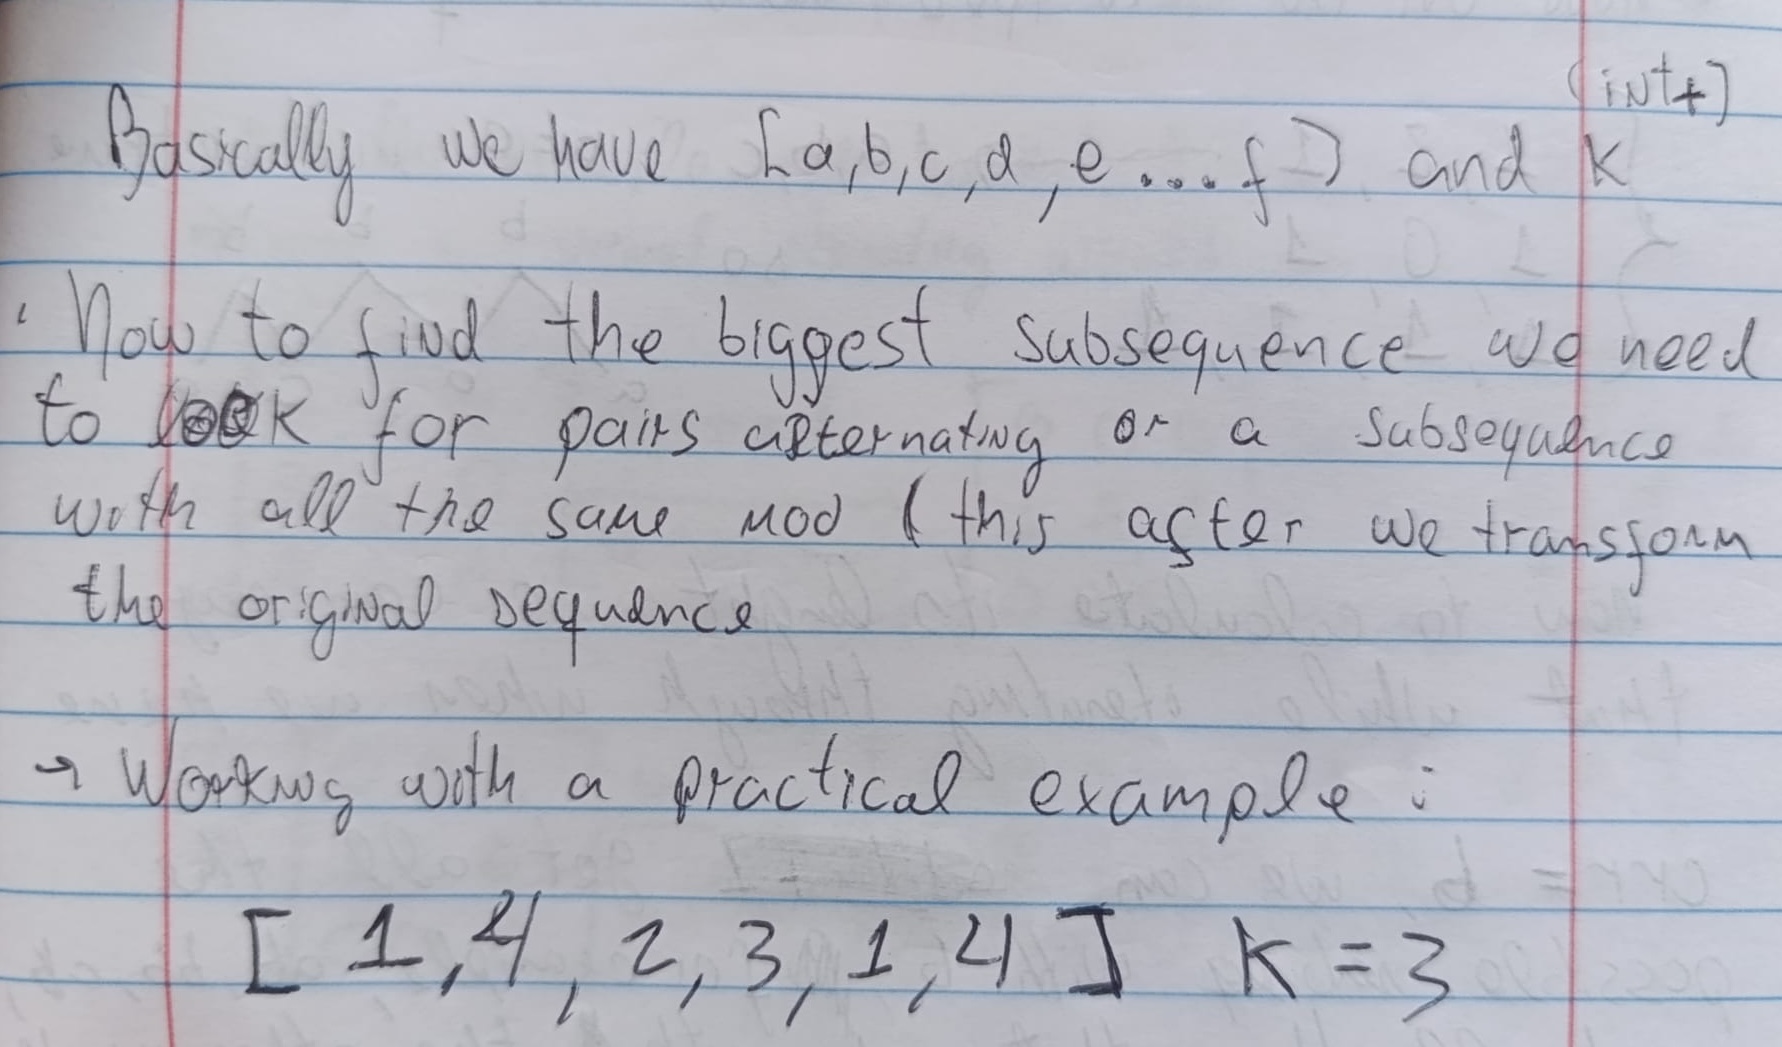 (int+)
Basically we have [a,b,c,d,e....f] and k
Now to find the biggest subsequence we need
to look for pairs alternating or a subsequence
with all the same mod (this after we transform
the original sequence
→ Working with a practical example :
[ 1,4,2,3,1,4 ] K = 3